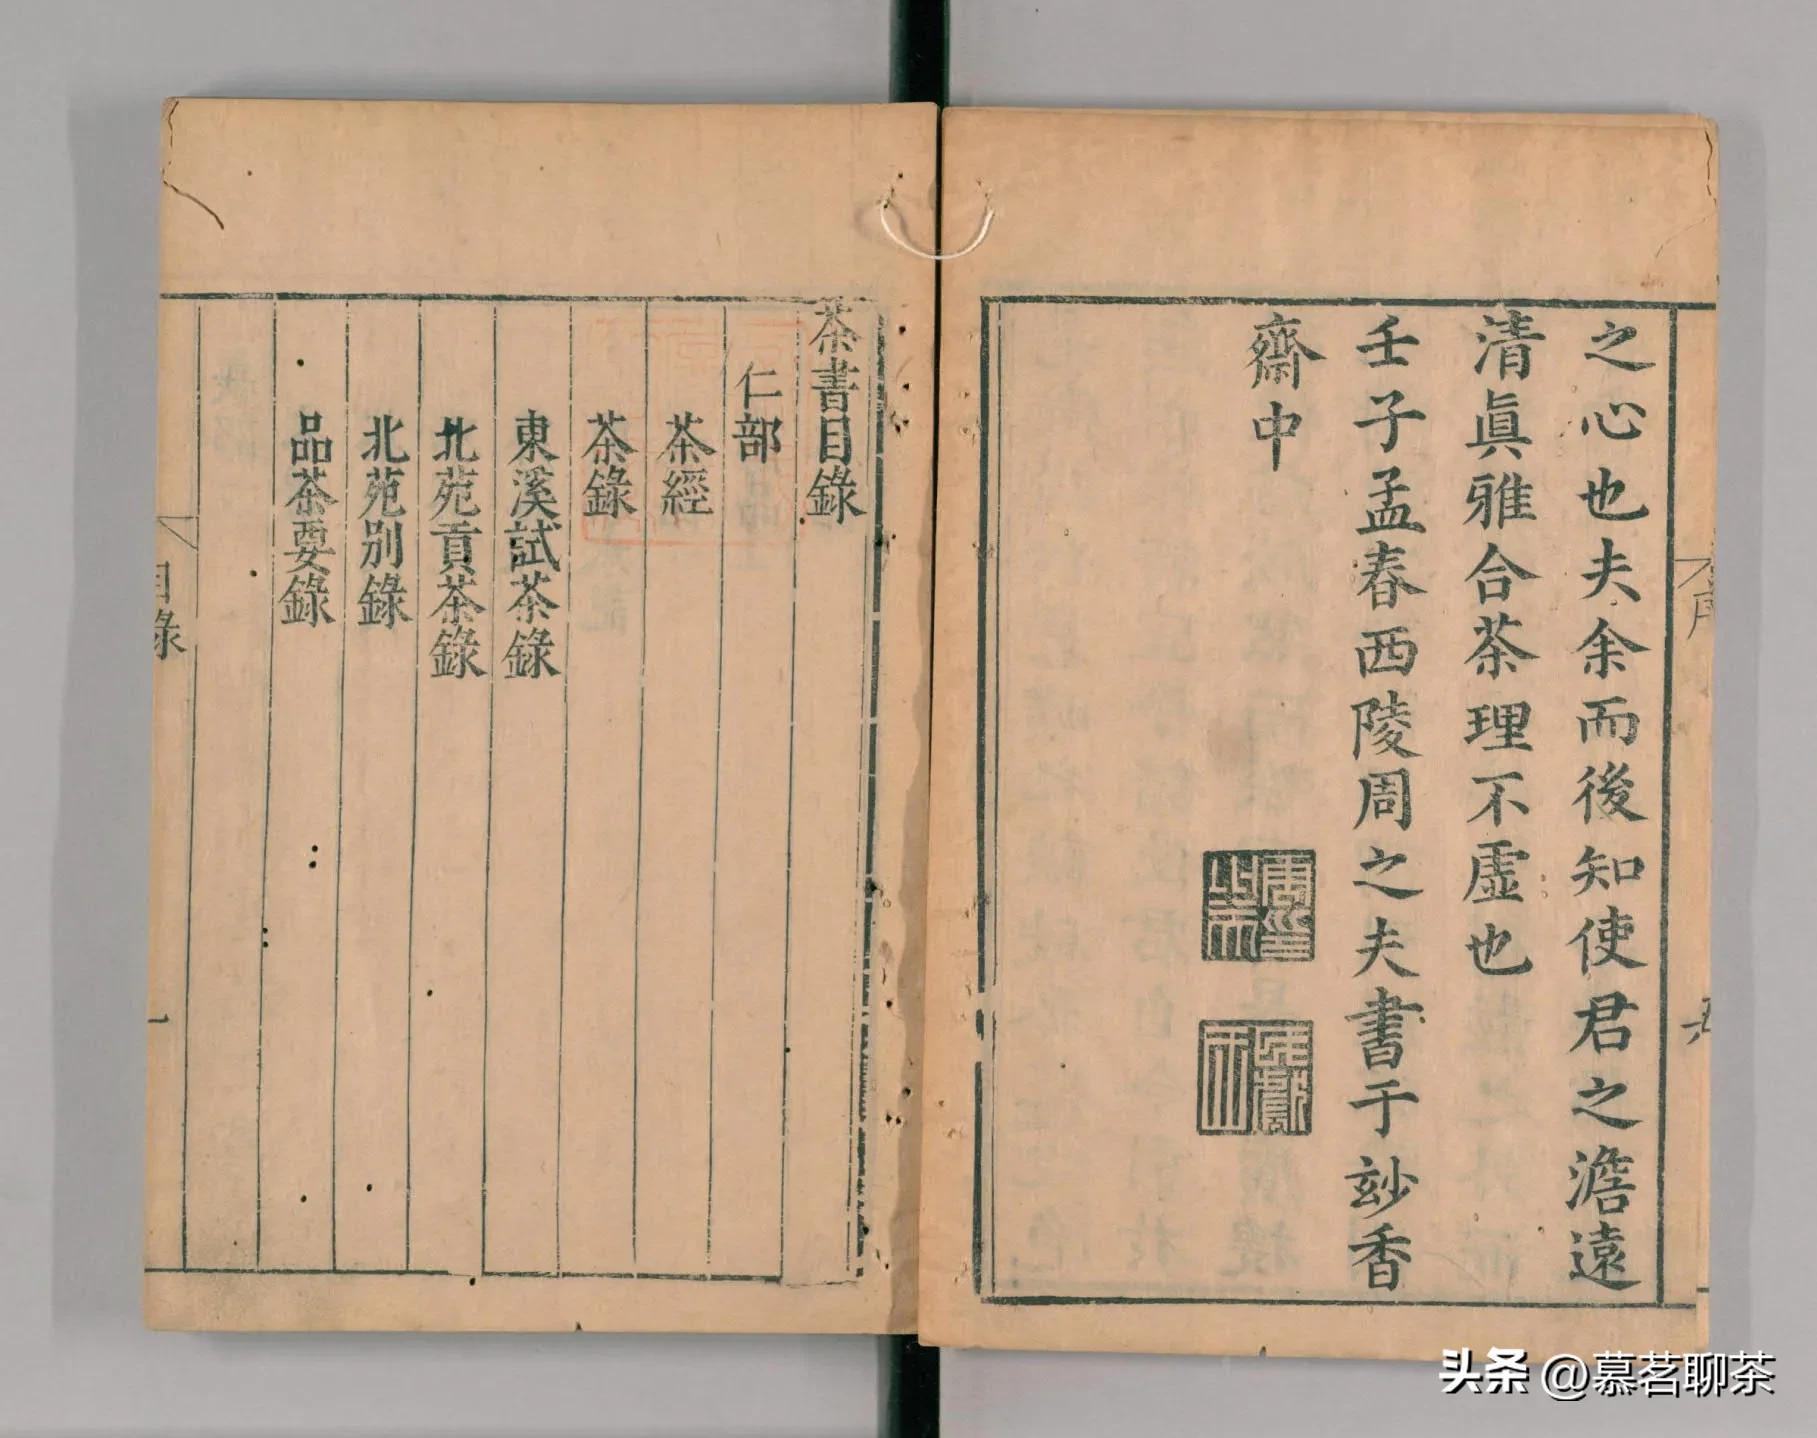 之心也夫余而後知使君之澹遠
清眞雅合茶理不虛也
壬子孟春西陵周之夫書于玅香
齋中
序
五
茶書目錄
仁部
茶經
茶錄
東溪試茶錄
北苑貢茶錄
北苑別錄
品茶要錄
目錄
一
头条 @慕茗聊茶